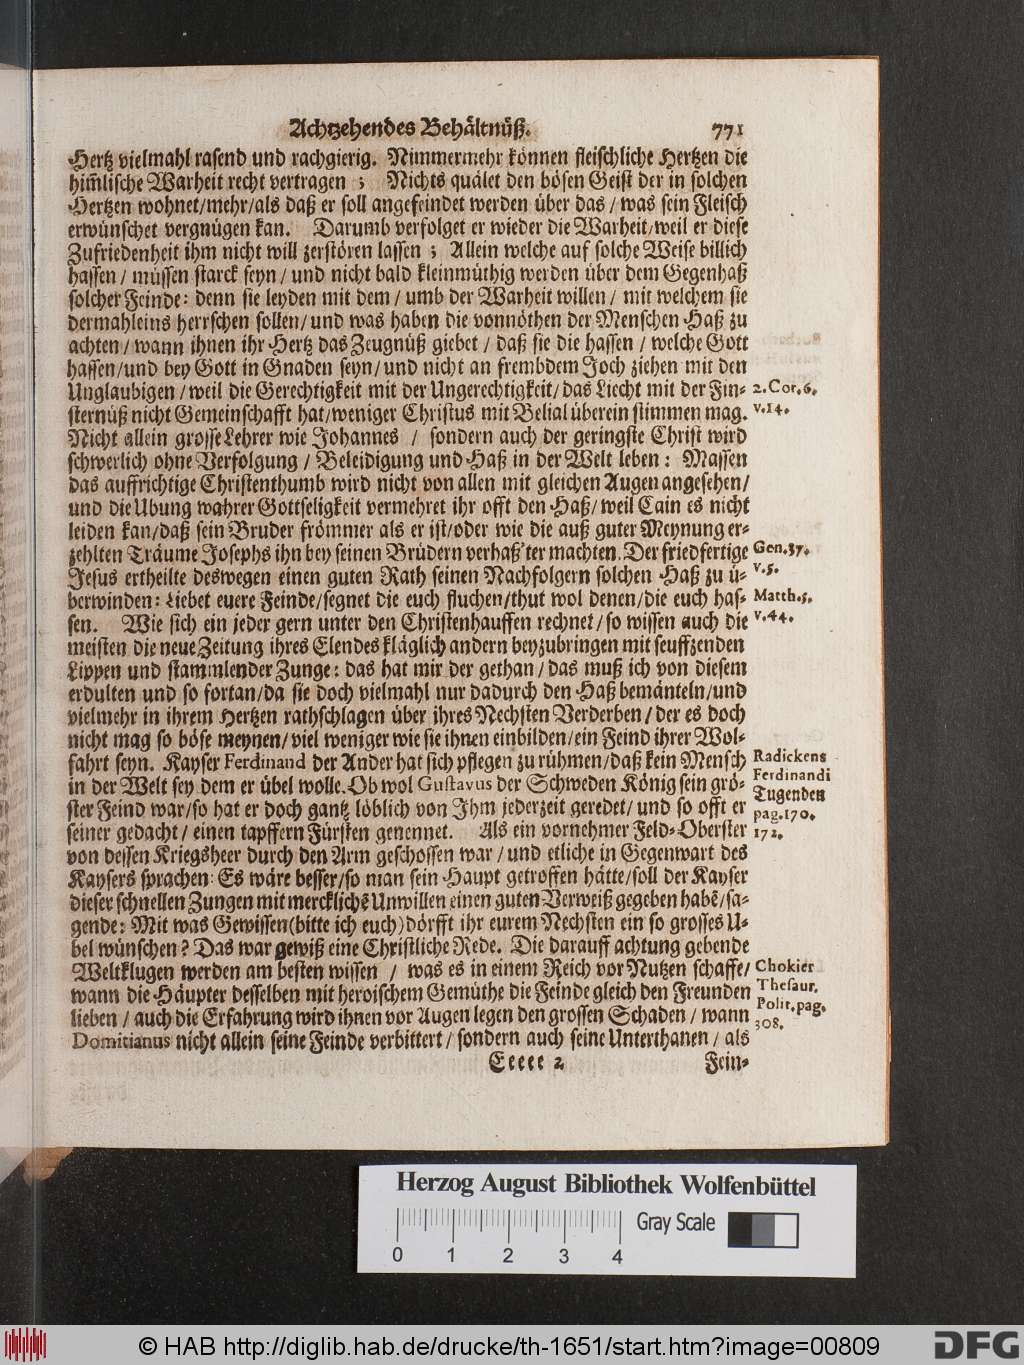 Achtzehendes Behältnüß. 771
Hertz vielmahl rasend und rachgierig. Nimmermehr können fleischliche Hertzen die
him̃lische Warheit recht vertragen ; Nichts quälet den bösen Geist der in solchen
Hertzen wohnet/mehr/als daß er soll angefeindet werden über das / was sein Fleisch
erwünschet vergnügen kan. Darumb verfolget er wieder die Warheit/weil er diese
Zufriedenheit ihm nicht will zerstören lassen ; Allein welche auf solche Weise billich
hassen / müssen starck seyn / und nicht bald kleinmüthig werden über dem Gegenhaß
solcher Feinde: denn sie leyden mit dem / umb der Warheit willen / mit welchem sie
dermahleins herrschen sollen/und was haben die vonnöthen der Menschen Haß zu
achten / wann ihnen ihr Hertz das Zeugnüß giebet / daß sie die hassen / welche Gott
hassen/und bey Gott in Gnaden seyn/und nicht an frembdem Joch ziehen mit den
Unglaubigen / weil die Gerechtigkeit mit der Ungerechtigkeit/das Liecht mit der Fin-
2. Cor. 6.
sternüß nicht Gemeinschafft hat/weniger Christus mit Belial überein stimmen mag.
v. 14.
Nicht allein grosse Lehrer wie Johannes / sondern auch der geringste Christ wird
schwerlich ohne Verfolgung / Beleidigung und Haß in der Welt leben: Massen
das auffrichtige Christenthumb wird nicht von allen mit gleichen Augen angesehen/
und die Ubung wahrer Gottseligkeit vermehret ihr offt den Haß/weil Cain es nicht
leiden kan/daß sein Bruder frömmer als er ist/oder wie die auß guter Meynung er-
zehlten Träume Josephs ihn bey seinen Brüdern verhaß'ter machten. Der friedfertige
Gen. 37.
Jesus ertheilte deswegen einen guten Rath seinen Nachfolgern solchen Haß zu ü-
v. 5.
berwinden: Liebet euere Feinde/segnet die euch fluchen/thut wol denen/die euch has-
Matth. 5.
sen. Wie sich ein jeder gern unter den Christenhauffen rechnet/so wissen auch die
v. 44.
meisten die neue Zeitung ihres Elendes kläglich andern beyzubringen mit seuffzenden
Lippen und stammlender Zunge: das hat mir der gethan/das muß ich von diesem
erdulten und so fortan/da sie doch vielmahl nur dadurch den Haß bemänteln/und
vielmehr in ihrem Hertzen rathschlagen über ihres Nechsten Verderben/der es doch
nicht mag so böse meynen/viel weniger wie sie ihnen einbilden/ein Feind ihrer Wol-
fahrt seyn. Kayser Ferdinand der Ander hat sich pflegen zu rühmen/daß kein Mensch
Radickens
in der Welt sey dem er übel wolle. Ob wol Gustavus der Schweden König sein grö-
Ferdinandi
ster Feind war/so hat er doch gantz löblich von Ihm jederzeit geredet/und so offt er
Tugenden
pag. 170.
seiner gedacht/einen tapffern Fürsten genennet. Als ein vornehmer Feld-Oberster
172.
von dessen Kriegsheer durch den Arm geschossen war / und etliche in Gegenwart des
Kaysers sprachen: Es wäre besser/so man sein Haupt getroffen hätte/soll der Kayser
dieser schnellen Zungen mit mercklichẽ Unwillen einen guten Verweiß gegeben habẽ/sa-
gende: Mit was Gewissen(bitte ich euch)dörfft ihr eurem Nechsten ein so grosses U-
bel wünschen? Das war gewiß eine Christliche Rede. Die darauff achtung gebende
Weltklugen werden am besten wissen / was es in einem Reich vor Nutzen schaffe/
Chokier
wann die Häupter desselben mit heroischem Gemüthe die Feinde gleich den Freunden
Thesaur.
lieben / auch die Erfahrung wird ihnen vor Augen legen den grossen Schaden / wann
Polit. pag.
308.
Domitianus nicht allein seine Feinde verbittert / sondern auch seine Unterthanen / als
Eeeee 2 Fein-
Herzog August Bibliothek Wolfenbüttel
Gray Scale
0 1 2 3 4
© HAB http://diglib.hab.de/drucke/th-1651/start.htm?image=00809
DFG